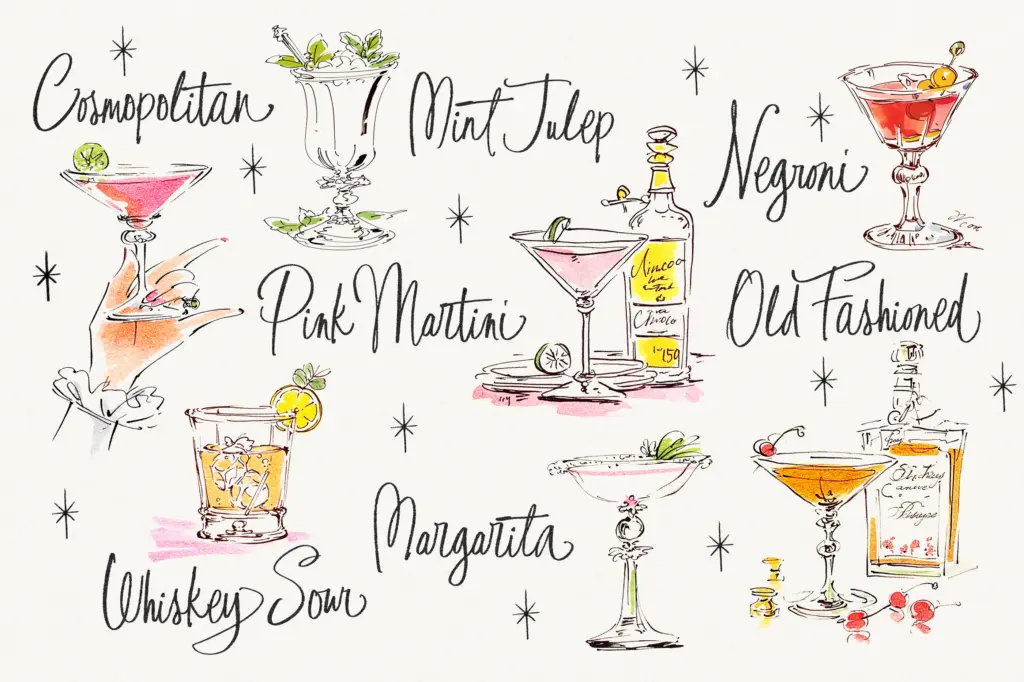 Cosmopolitan
Mint Julep
Negroni
Pink Martini
Old Fashioned
150
Margarita
Whiskey Sour